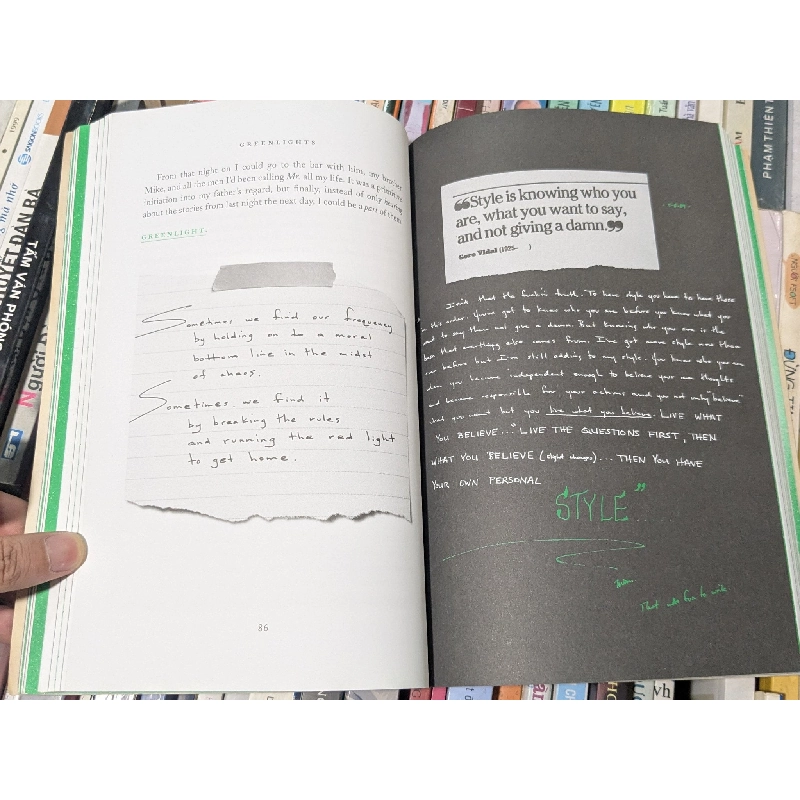 GREENLIGHTS
From that night on I could go to the bar with him, my brother
Mike, and all the men I'd been calling Mr. all my life. It was a
initiation into my father's regard, but finally, instead of only hearing
about the stories from last night the next day, I could be a part of
GREENLIGHT.
Sometimes we find our frequency
by holding on to a moral
bottom line in the midst
of chaos.
Sometimes we find it
by breaking the rules
and running the red light
to get home.
86
❝Style is knowing who you
are, what you want to say,
and not giving a damn.❞
Gore Vidal (1925- )
that the truth. To have style you have to have these
this order. You've got to know who you are before you know what you
to say then not give a damn. But knowing who you are is the
that everything else comes from. I've got more style now than
before but I'm still adding to my style. you know who you are
you become independent enough to believe your own thoughts
and become responsible for your actions and you not only believe
what you want but you live what you believe. LIVE WHAT
YOU BELIEVE..." LIVE THE QUESTIONS FIRST, THEN
WHAT YOU BELIEVE (slight changes)... THEN YOU HAVE
YOUR OWN PERSONAL
STYLE"..
That was fun to write
TÂM VĂN PHÒNG
PHẠM THIÊN
1990
NGƯỜI
vh